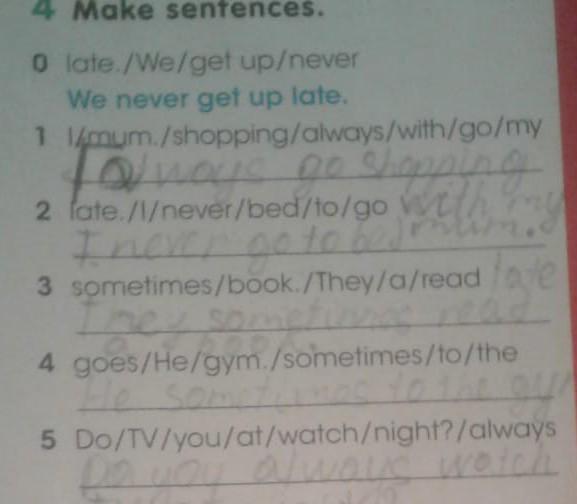 4 Make sentences.
0 late./We/get up/never
We never get up late.
1 I/mum./shopping/always/with/go/my
I always go shopping
2 late./I/never/bed/to/go with my
I never go to bed mum.
3 sometimes/book./They/a/read late
They sometimes read
a book.
4 goes/He/gym./sometimes/to/the
He sometimes to the gym
5 Do/TV/you/at/watch/night?/always
Do you always watch